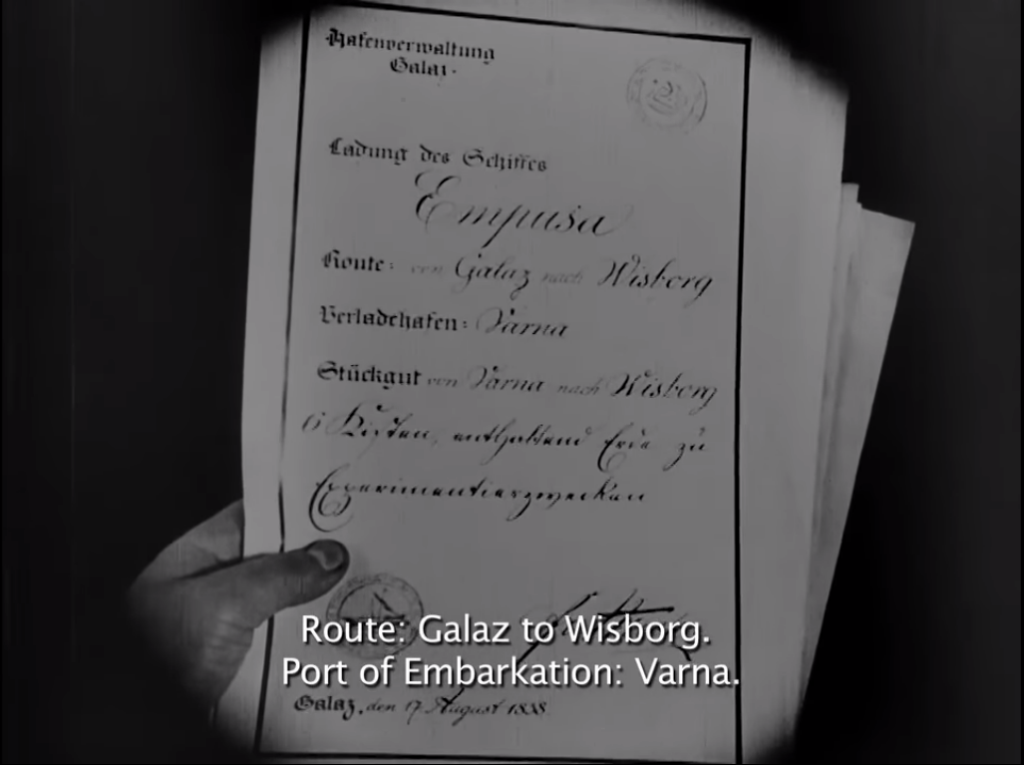 Hafenverwaltung
Galaz.
Ladung des Schiffes
Empusa
Route: von Galaz nach Wisborg
Verladehafen: Varna
Stückgut von Varna nach Wisborg
6 Kisten, enthaltend Erde zu
Experimentierzwecken
Route: Galaz to Wisborg.
Port of Embarkation: Varna.
Galaz, den 17. August 1838.